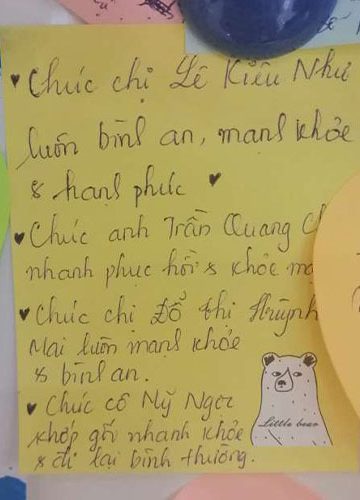 ♥ Chúc chị Lê Kiều Như
luôn bình an, mạnh khỏe
& hạnh phúc ♥
♥ Chúc anh Trần Quang
nhanh phục hồi & khỏe
♥ Chúc chị Đỗ thị Huỳnh
Mai luôn mạnh khỏe
& bình an.
♥ Chúc cô Mỹ Ngọc
khớp gối nhanh khỏe
& đi lại bình thường.
Little bear